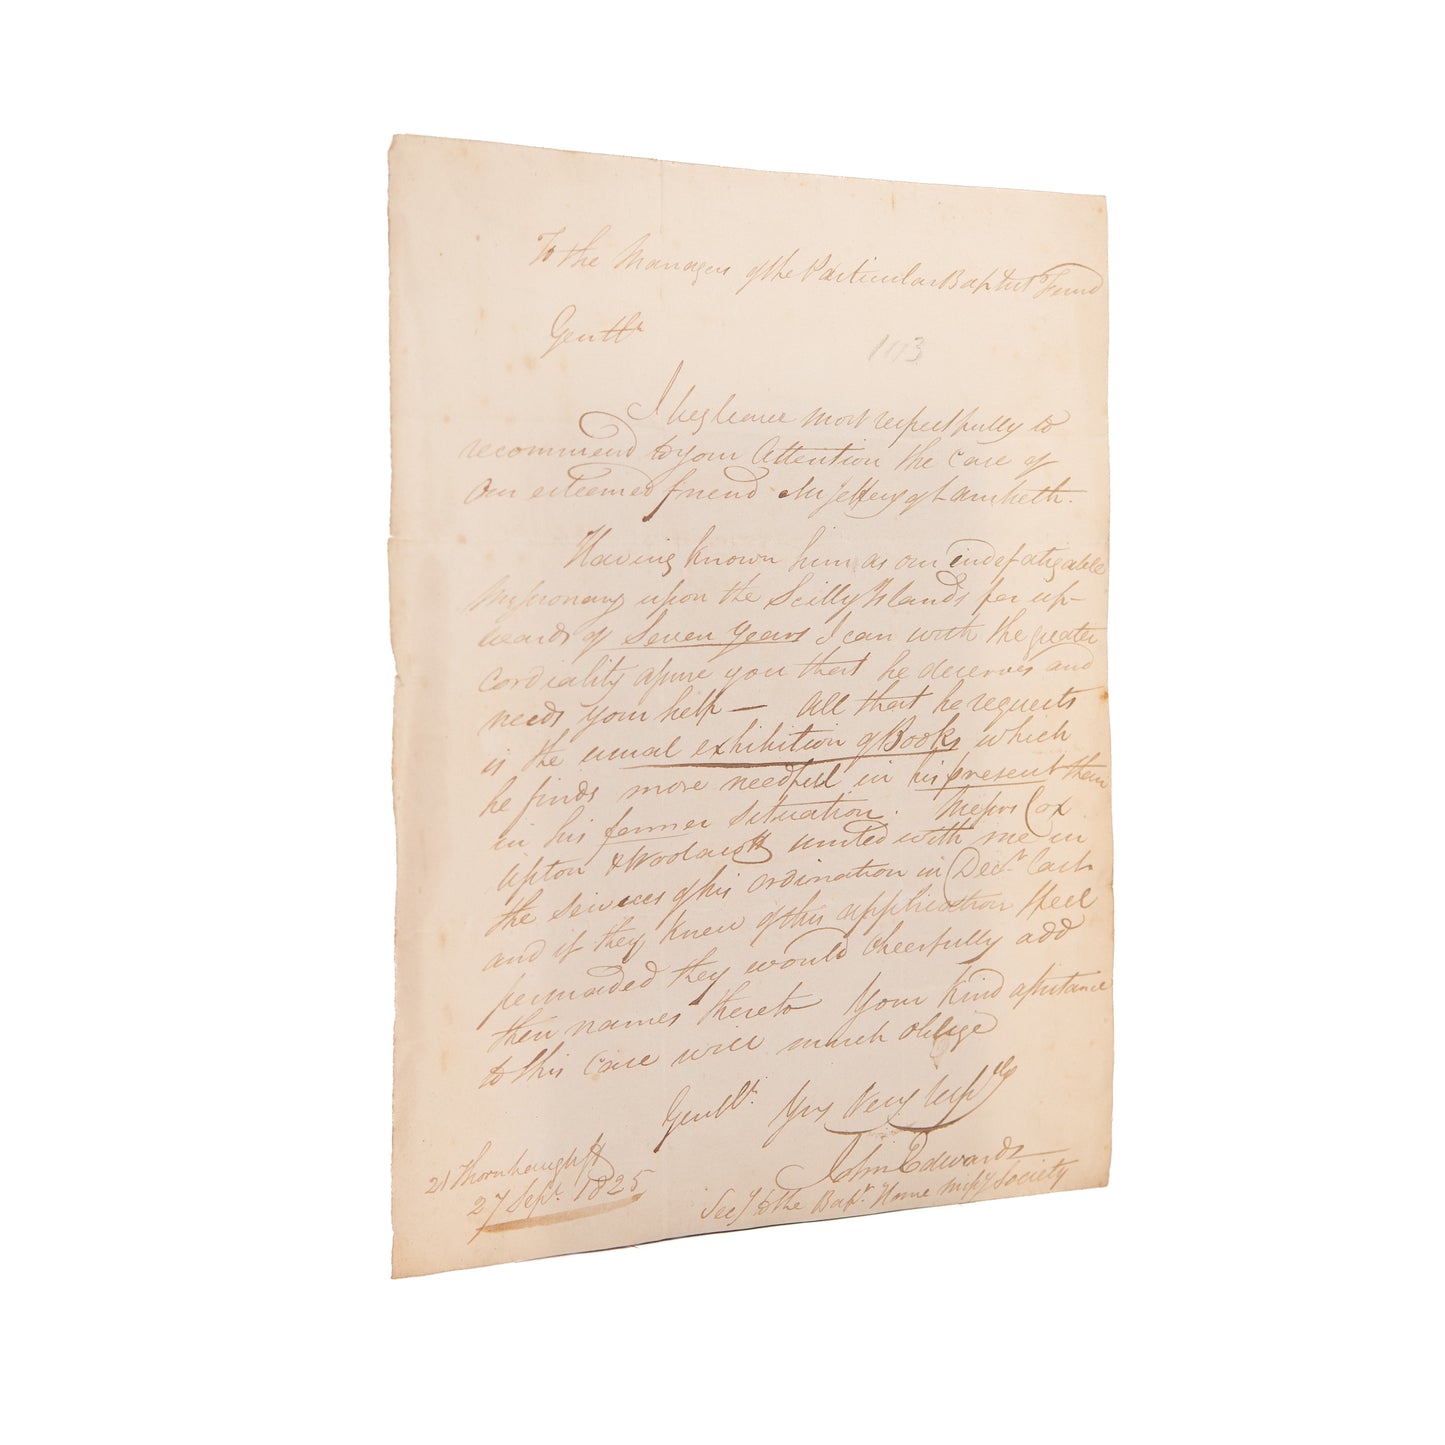 To the Managers of the Particular Baptist Fund
Gentln
I beg leave most respectfully to
recommend to your Attention the Case of
Our esteemed friend Mr Jeffery of Lambeth.
Having known him as our indefatigable
Missionary upon the Scilly Islands for up-
wards of Seven Years I can with the greater
cordiality assure you that he deserves and
needs your help — All that he requests
is the usual exhibition of Books which
he finds more needful in his present than
in his former situation. Messrs Cox
Upton & Woolacott united with me in
the services of his ordination in Decr last
and if they knew of this application I feel
persuaded they would cheerfully add
their names thereto Your kind assistance
to this Case will much oblige
Gentln Yrs Very respfly
John Edwards
Secy to the Bapt Home Missy Society
21 Thornhaugh St
27 Sept. 1825